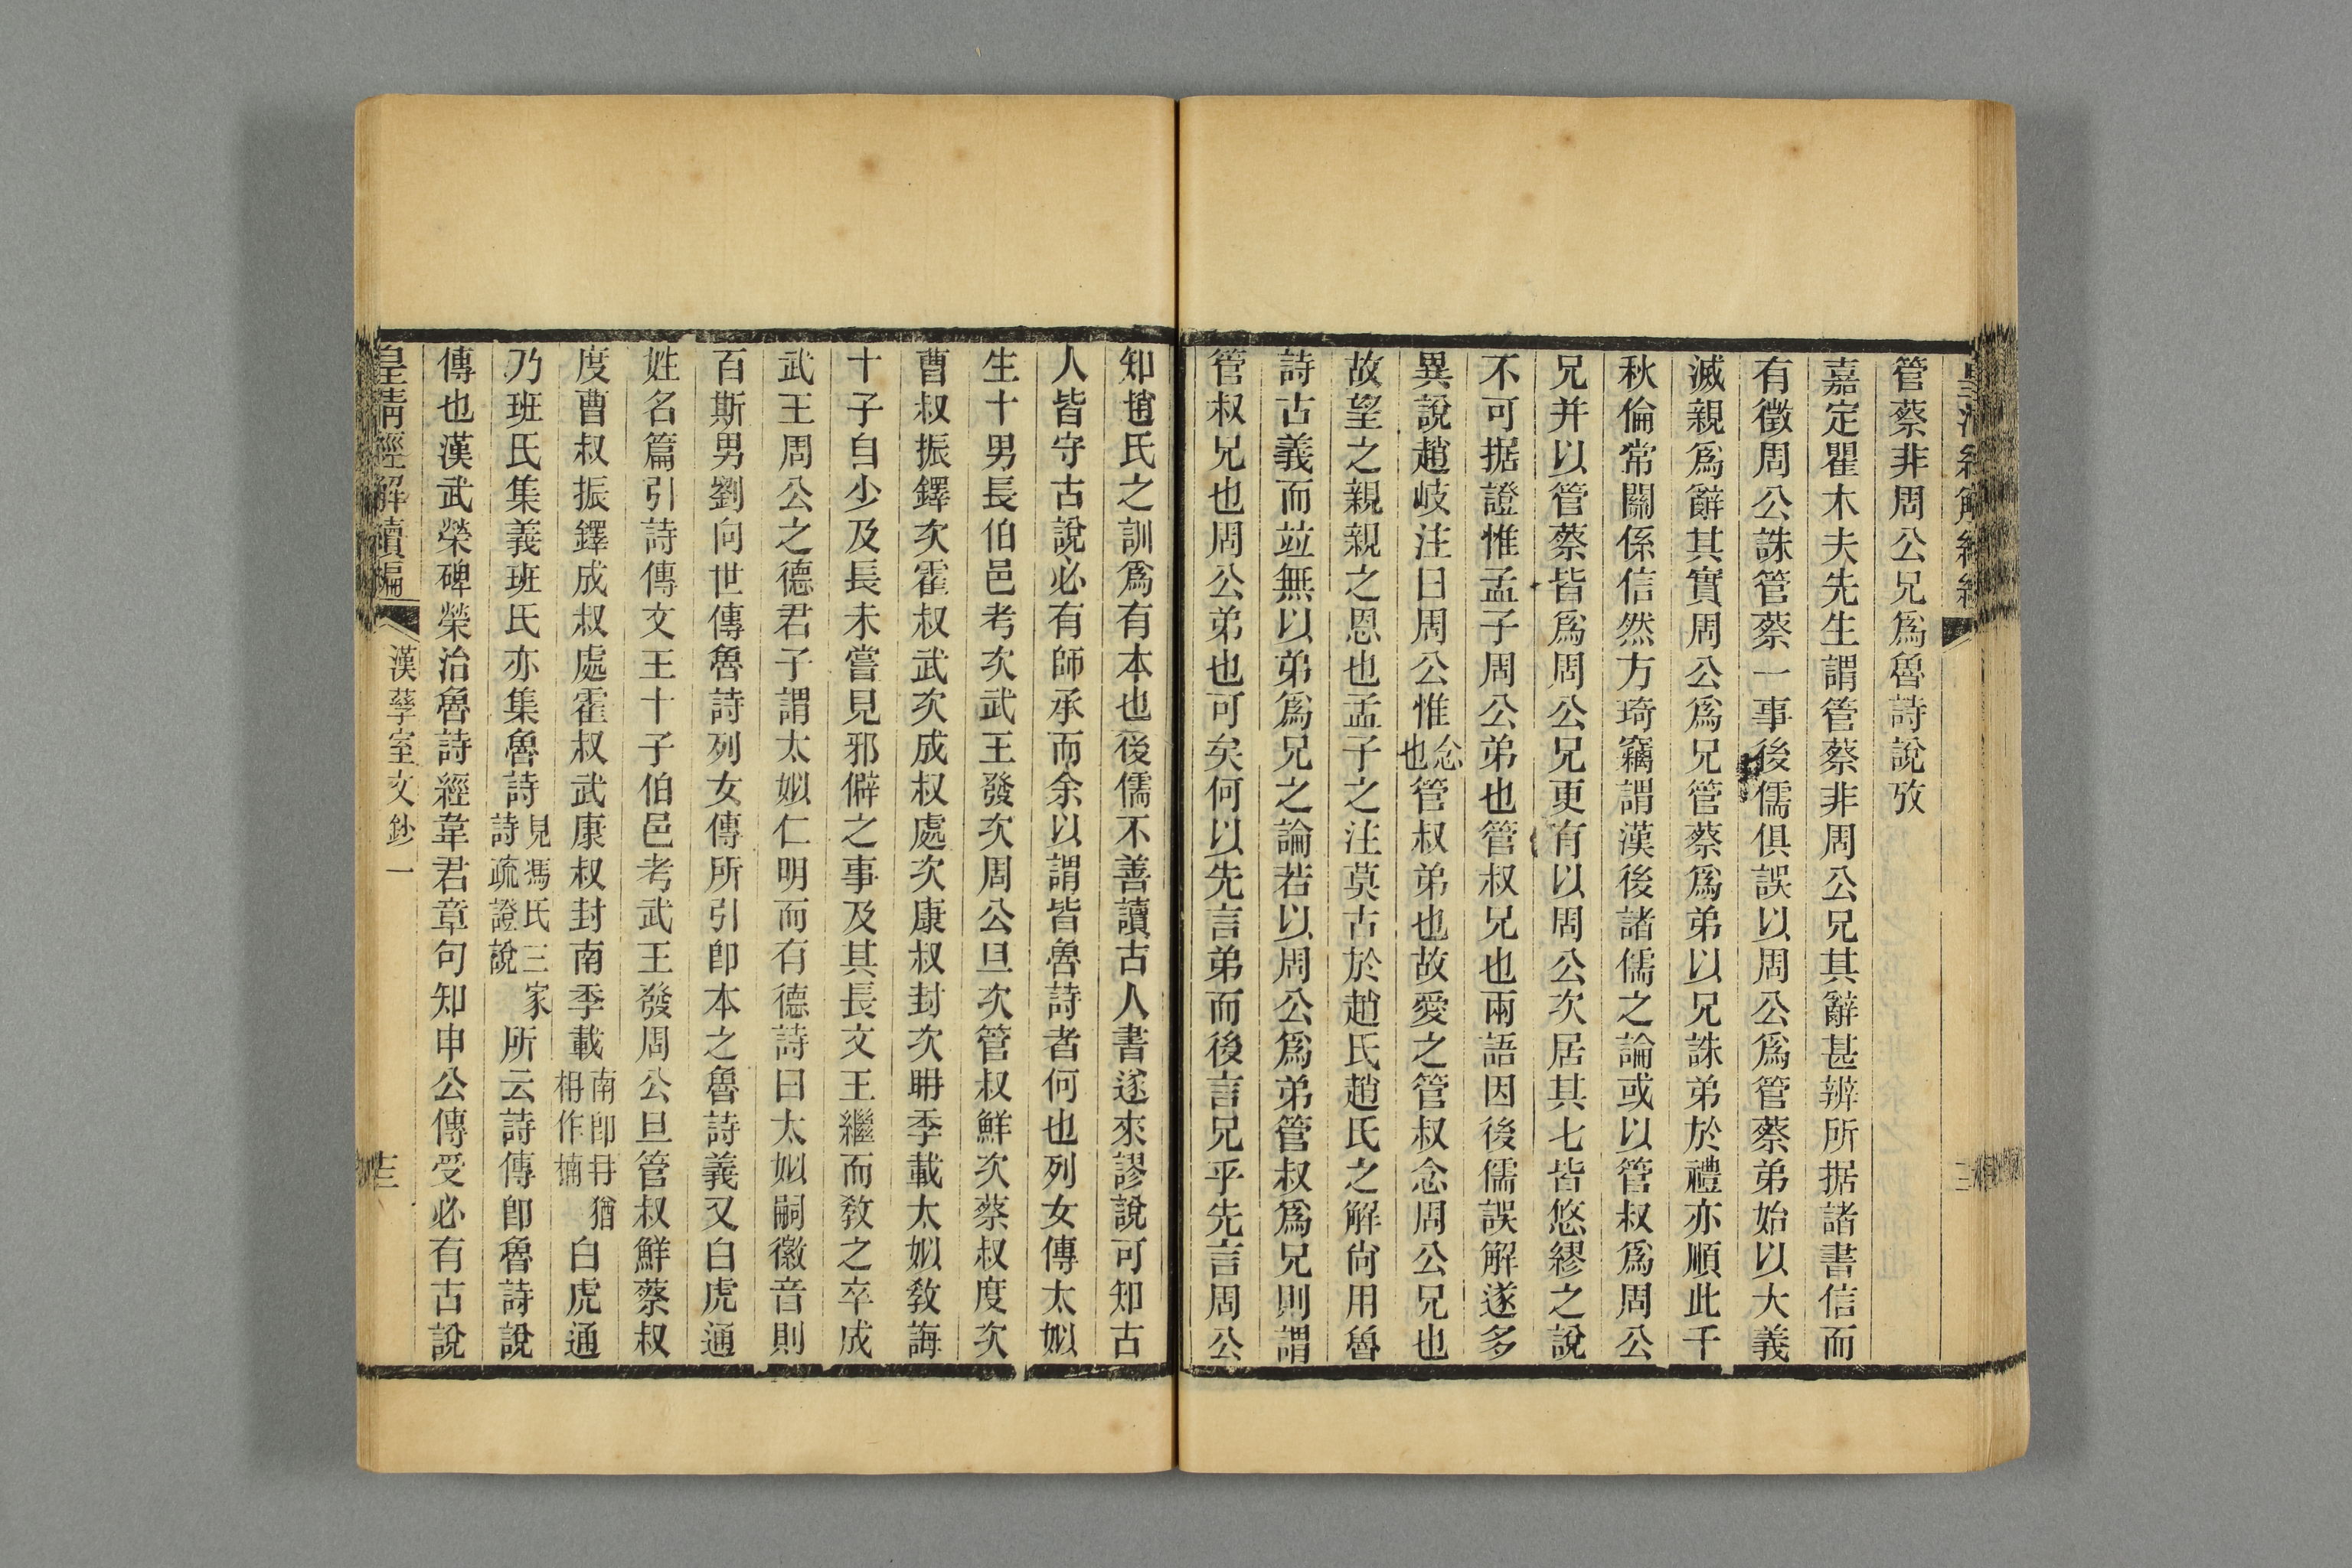 管蔡非周公兄爲魯詩說攷
嘉定瞿木夫先生謂管蔡非周公兄其辭甚辨所据諸書信而
有徵周公誅管蔡一事後儒俱誤以周公爲管蔡弟始以大義
滅親爲辭其實周公爲兄管蔡爲弟以兄誅弟於禮亦順此千
秋倫常關係信然方琦竊謂漢後諸儒之論或以管叔爲周公
兄并以管蔡皆爲周公兄更有以周公次居其七皆悠繆之說
不可据證惟孟子周公弟也管叔兄也兩語因後儒誤解遂多
異說趙岐注曰周公惟念也管叔弟也故愛之管叔念周公兄也
故望之親親之恩也孟子之注莫古於趙氏趙氏之解尙用魯
詩古義而竝無以弟爲兄之論若以周公爲弟管叔爲兄則謂
管叔兄也周公弟也可矣何以先言弟而後言兄乎先言周公
知趙氏之訓爲有本也後儒不善讀古人書遂來謬說可知古
人皆守古說必有師承而余以謂皆魯詩者何也列女傳太姒
生十男長伯邑考次武王發次周公旦次管叔鮮次蔡叔度次
曹叔振鐸次霍叔武次成叔處次康叔封次聃季載太姒敎誨
十子自少及長未嘗見邪僻之事及其長文王繼而敎之卒成
武王周公之德君子謂太姒仁明而有德詩曰太姒嗣徽音則
百斯男劉向世傳魯詩列女傳所引卽本之魯詩義又白虎通
姓名篇引詩傳文王十子伯邑考武王發周公旦管叔鮮蔡叔
度曹叔振鐸成叔處霍叔武康叔封南季載南卽冄猶枏作楠白虎通
乃班氏集義班氏亦集魯詩見馮氏三家詩疏證說所云詩傳卽魯詩說
傳也漢武榮碑榮治魯詩經韋君章句知申公傳受必有古說
皇淸經解續編 漢孳室文鈔一